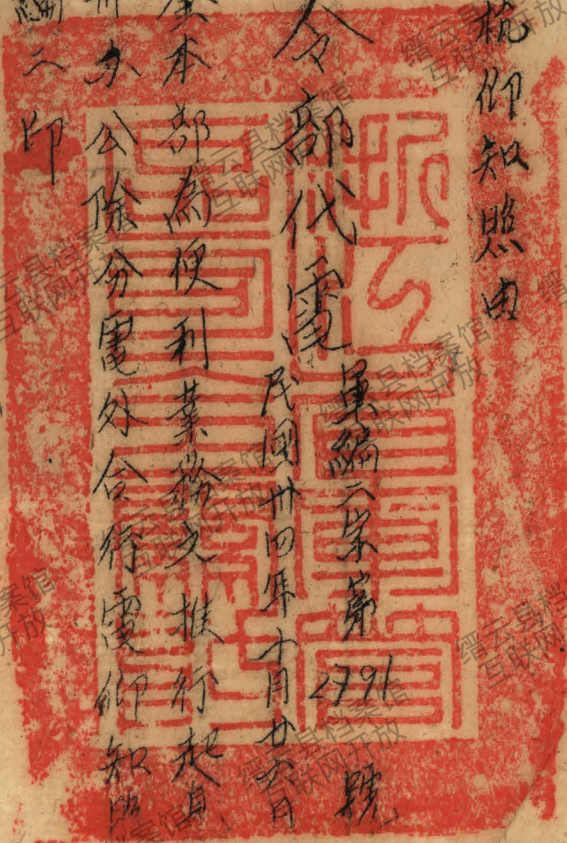 杭仰知照由
令部代電
編二字第2791號
民國卅四年十月廿六日
本部為便利業務之推行起見
办公除分電外合行電仰知照
編二印
缙云县档案馆
互联网开放